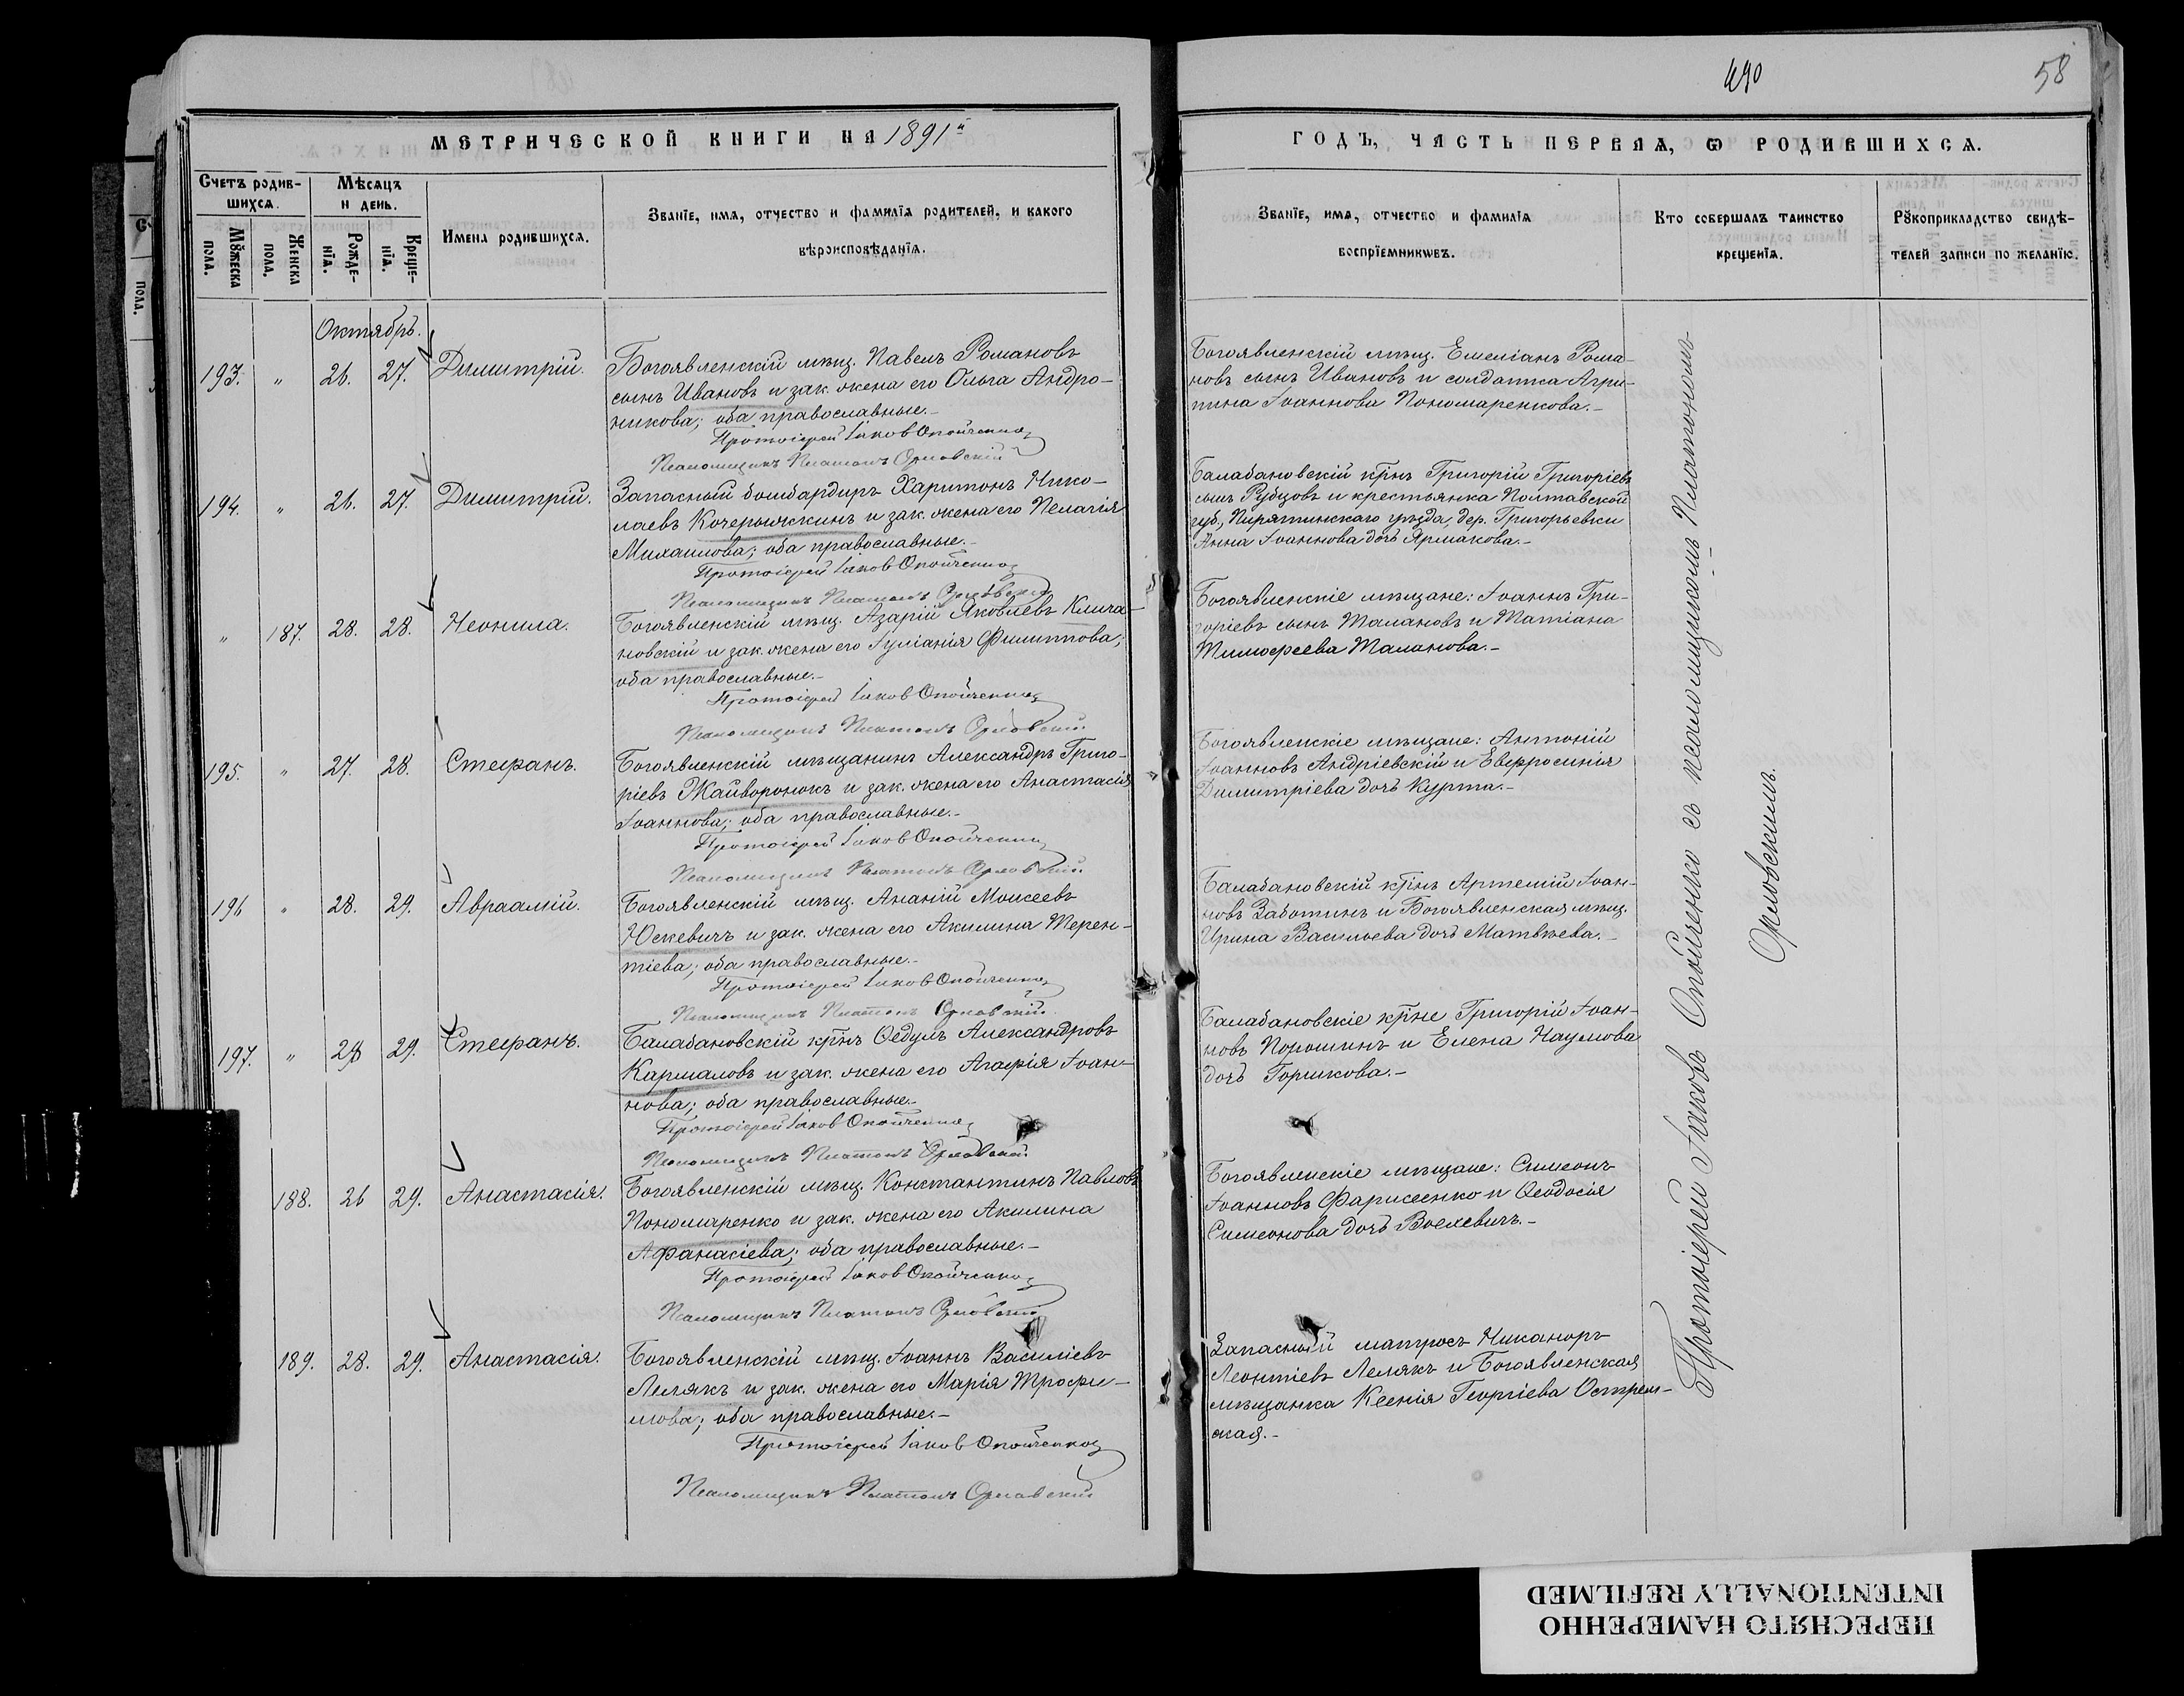 490
58
МЕТРИЧЕСКОЙ КНИГИ НА 1891й
ГОДЪ, ЧАСТЬ ПЕРВАЯ, Ѡ РОДИВШИХСѦ.
Счетъ родив-
шихсѧ.
Мѣсѧцъ
и день.
Мꙋжеска
пола.
Женска
пола.
Рожде-
нїѧ.
Креще-
нїѧ.
Имена родившихсѧ.
Званїе, имѧ, отчество и фамилїѧ родителей, и какого
вѣроисповѣданїѧ.
Званїе, имѧ, отчество и фамилїѧ
воспрїемникѡвъ.
Кто совершалъ таинство
крещенїѧ.
Рꙋкоприкладство свидѣ-
телей записи по желанїю.
Октябрь.
193. " 26. 27. Димитрій.
Богоявленскій мѣщ. Павелъ Романовъ
сынъ Ивановъ и зак. жена его Ольга Андро-
никова; оба православные.-
Протоіерей Іаковъ Опойченко
Псаломщикъ Платонъ Орловскій
Богоявленскій мѣщ. Емеліанъ Рома-
новъ сынъ Ивановъ и солдатка Агри-
пина Іоаннова Пономаренкова.-
194. " 26. 27. Димитрій.
Запасный бомбардиръ Харитонъ Нико-
лаевъ Кочерыжкинъ и зак. жена его Пелагія
Михаилова; оба православные.-
Протоіерей Іаковъ Опойченко
Псаломщикъ Платонъ Орловскій
Балабановскій кр̃нъ Григорій Григоріевъ
сынъ Рубцовъ и крестьянка Полтавской
губ., Пирятинскаго уѣзда, дер. Григорьевки
Анна Іоаннова дочь Ярмакова.-
" 187. 28. 28. Неонила.
Богоявленскій мѣщ. Азарій Яковлевъ Клича-
новскій и зак. жена его Іуліанія Филиппова;
оба православные.-
Протоіерей Іаковъ Опойченко
Псаломщикъ Платонъ Орловскій
Богоявленскіе мѣщане: Іоаннъ Гри-
горіевъ сынъ Талановъ и Татіана
Тимофеева Таланова.-
195. " 27. 28. Стефанъ.
Богоявленскій мѣщанинъ Александръ Григо-
ріевъ Жайворонокъ и зак. жена его Анастасія
Іоаннова; оба православные.-
Протоіерей Іаковъ Опойченко
Псаломщикъ Платонъ Орловскій
Богоявленскіе мѣщане: Антоній
Іоанновъ Андріевскій и Евфросинія
Димитріева дочь Курта.-
196 " 28. 29. Авраамій.
Богоявленскій мѣщ. Ананій Моисеевъ
Юскевичъ и зак. жена его Акилина Терен-
тіева; оба православные.-
Протоіерей Іаковъ Опойченко
Псаломщикъ Платонъ Орловскій
Балабановскій кр̃нъ Артемій Іоан-
новъ Заботинъ и Богоявленская мѣщ.
Ирина Васильева дочь Матвѣева.-
197. " 28 29. Стефанъ.
Балабановскій кр̃нъ Ѳедулъ Александровъ
Кармаловъ и зак. жена его Агафія Іоан-
нова; оба православные.-
Протоіерей Іаковъ Опойченко
Псаломщикъ Платонъ Орловскій
Балабановскіе кр̃не Григорій Іоан-
новъ Порошинъ и Елена Наумова
дочь Горшкова.-
188. 26 29. Анастасія.
Богоявленскій мѣщ. Константинъ Павловъ
Пономаренко и зак. жена его Акилина
Афанасіева; оба православные.-
Протоіерей Іаковъ Опойченко
Псаломщикъ Платонъ Орловскій
Богоявленскіе мѣщане: Симеонъ
Іоанновъ Фарисеенко и Ѳеодосія
Симеонова дочь.-
189. 28. 29. Анастасія.
Богоявленскій мѣщ. Іоаннъ Василіевъ
Лелякъ и зак. жена его Марія Трофи-
мова; оба православные.-
Протоіерей Іаковъ Опойченко
Псаломщикъ Платонъ Орловскій
Запасный матросъ Никаноръ
Леонтіевъ Лелякъ и Богоявленская
мѣщанка Ксенія Георгіева
Протоіерей Іаковъ Опойченко съ псаломщикомъ Платономъ
Орловскимъ.
ПЕРЕСНЯТО НАМЕРЕННО
INTENTIONALLY REFILMED